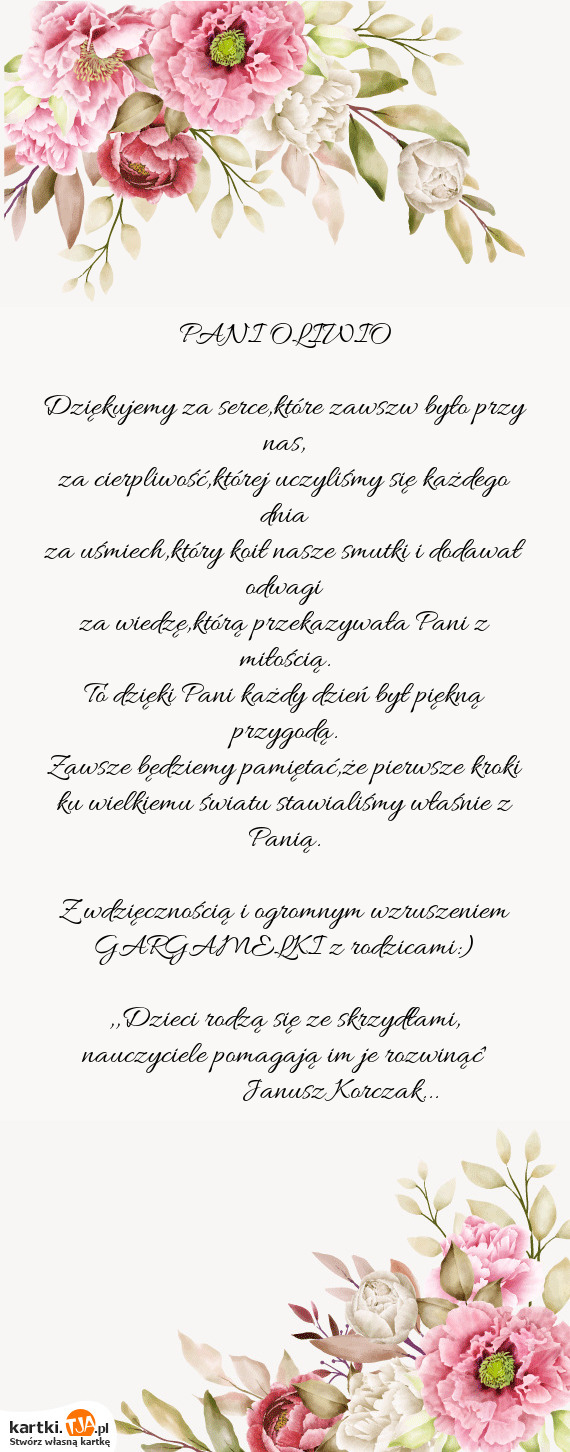 PANI OLIWIO
Dziękujemy za serce,które zawszw było przy
nas,
za cierpliwość,której uczyliśmy się każdego
dnia
za uśmiech,który koił nasze smutki i dodawał
odwagi
za wiedzę,którą przekazywała Pani z
miłością.
To dzięki Pani każdy dzień był piękną
przygodą.
Zawsze będziemy pamiętać,że pierwsze kroki
ku wielkiemu światu stawialiśmy właśnie z
Panią.
Z wdzięcznością i ogromnym wzruszeniem
GARGAMELKI z rodzicami:)
,,Dzieci rodzą się ze skrzydłami,
nauczyciele pomagają im je rozwinąć"
Janusz Korczak...
kartki.TJA.pl
Stwórz własną kartkę